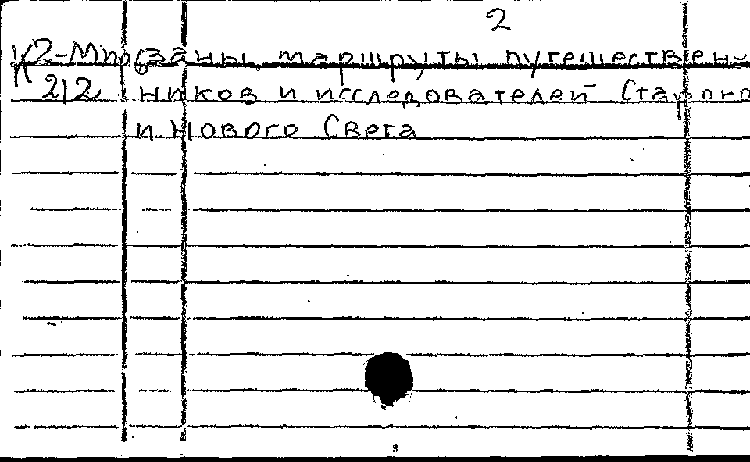 2
К2-Миро заны маршруты путешествен-
212 ников и исследователей Старого
и Нового Света